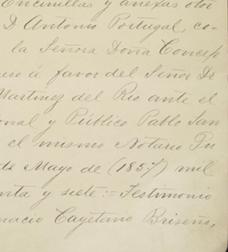 Encinillas y anexas otor
D Antonio Portugal, co-
la Señora Doña Concep
uso á favor del Señor D
Martinez del Rio ante el
onal y Público Pablo San
el mismo Notario Pu
de Mayo de (1857) mil
nta y siete:- Testimonio
nacio Cayetano Briseño,